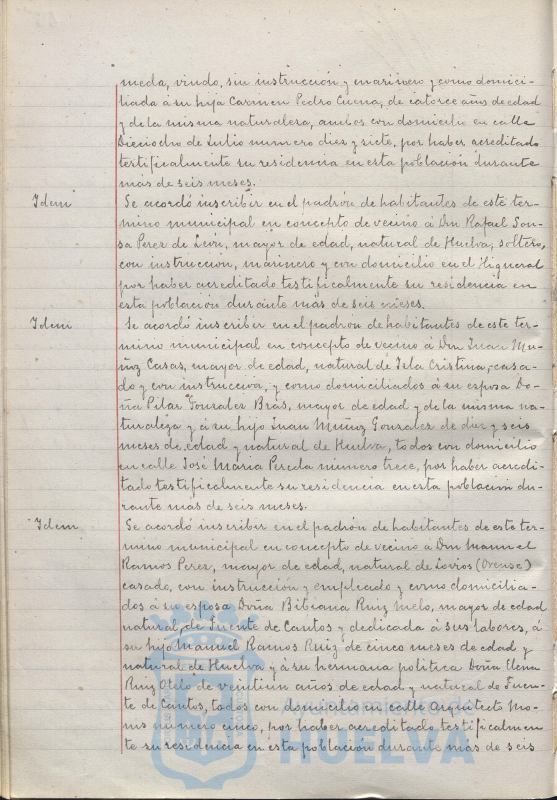 meda, viudo, sin instrucción y marinero y como domici-
liada á su hija Carmen Pedro Cuena, de catorce años de edad
y de la misma naturaleza, ambos con domicilio en calle
Dieciocho de Julio numero diez y siete, por haber acreditado
testificalmente su residencia en esta población durante
más de seis meses.
Idem Se acordó inscribir en el padrón de habitantes de este ter-
mino municipal en concepto de vecino á Don Rafael Sou-
sa Perez de León, mayor de edad, natural de Huelva, soltero,
con instrucción, marinero y con domicilio en el Higueral
por haber acreditado testificalmente su residencia en
esta población durante más de seis meses.
Idem Se acordó inscribir en el padrón de habitantes de este ter-
mino municipal en concepto de vecino á Don Juan Mu-
ñoz Casas, mayor de edad, natural de Isla Cristina, casa-
do y con instrucción, y como domiciliados á su esposa Do-
ña Pilar Gonzalez Brás, mayor de edad y de la misma na-
turaleza y á su hijo Juan Muñoz Gonzalez de diez y seis
meses de edad y natural de Huelva, todos con domicilio
en calle José Maria Pereda número trece, por haber acredi-
tado testificalmente su residencia en esta población du-
rante más de seis meses.
Idem Se acordó inscribir en el padrón de habitantes de este ter-
mino municipal en concepto de vecino á Don Manuel
Ramos Perez, mayor de edad, natural de Lovios (Orense)
casado, con instrucción y empleado y como domicilia-
dos á su esposa Doña Bibiana Ruiz Melo, mayor de edad
natural de Fuente de Cantos y dedicada á sus labores, á
su hijo Manuel Ramos Ruiz de cinco meses de edad y
natural de Huelva y á su hermana politica Doña Elena
Ruiz Otelo de veintiun años de edad y natural de Fuen-
te de Cantos, todos con domicilio en calle Arquitecto Mo-
nis número cinco, por haber acreditado testificalmen
te su residencia en esta población durante más de seis
HUELVA